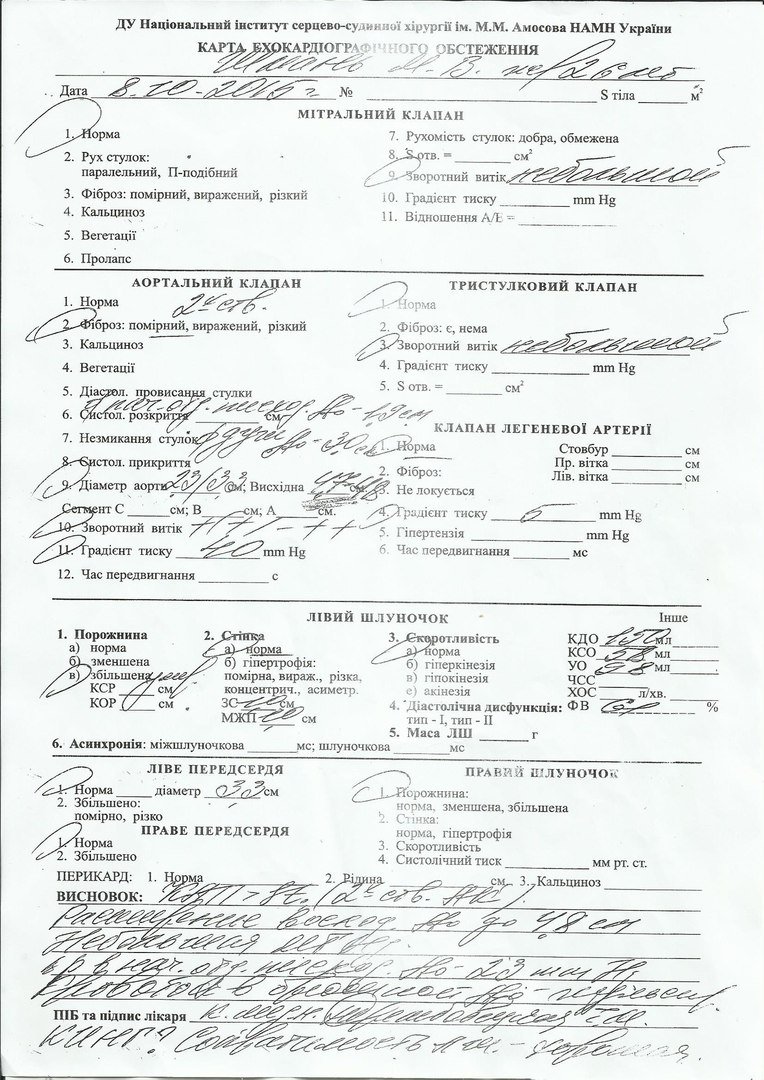 ДУ Національний інститут серцево-судинної хірургії ім. М.М. Амосова НАМН України
КАРТА ЕХОКАРДІОГРАФІЧНОГО ОБСТЕЖЕННЯ
М. В. 26 лет
Дата 8.10.2015 г. № S тіла м²
МІТРАЛЬНИЙ КЛАПАН
1. Норма
2. Рух стулок:
паралельний, П-подібний
3. Фіброз: помірний, виражений, різкий
4. Кальциноз
5. Вегетації
6. Пролапс
7. Рухомість стулок: добра, обмежена
8. S отв. = см²
9. Зворотний витік небольшой
10. Градієнт тиску mm Hg
11. Відношення А/Е =
АОРТАЛЬНИЙ КЛАПАН
1. Норма 2х ств.
2. Фіброз: помірний, виражений, різкий
3. Кальциноз
4. Вегетації
5. Діастол. провисання стулки
нач. отд. нисход. Ао - 1,9 см
6. Систол. розкриття см
7. Незмикання стулок дуги Ао - 3,0 см
8. Систол. прикриття
9. Діаметр аорти 23/33 см; Висхідна 47-48 см.
Сегмент С см; В см; А см.
10. Зворотний витік ++/-++
11. Градієнт тиску 40 mm Hg
12. Час передвигнання с
ТРИСТУЛКОВИЙ КЛАПАН
1. Норма
2. Фіброз: є, нема
3. Зворотний витік небольшой
4. Градієнт тиску mm Hg
5. S отв. = см²
КЛАПАН ЛЕГЕНЕВОЇ АРТЕРІЇ
1. Норма
2. Фіброз:
3. Не локується
4. Градієнт тиску 5 mm Hg
5. Гіпертензія mm Hg
6. Час передвигнання мс
Стовбур см
Пр. вітка см
Лів. вітка см
ЛІВИЙ ШЛУНОЧОК
1. Порожнина
а) норма
б) зменшена
в) збільшена
КСР см
КОР см
2. Стінка
а) норма
б) гіпертрофія:
помірна, вираж., різка,
концентрич., асиметр.
ЗС 10 см
МЖП 10 см
3. Скоротливість
а) норма
б) гіперкінезія
в) гіпокінзія
е) акінезія
4. Діастолічна дисфункція:
тип - I, тип - II
5. Маса ЛШ г
Інше
КДО 150 мл
КСО 58 мл
УО 98 мл
ЧСС
ХОС л/хв.
ФВ 61 %
6. Асинхронія: міжшлуночкова мс; шлуночкова мс
ЛІВЕ ПЕРЕДСЕРДЯ
1. Норма діаметр 3,3 см
2. Збільшено:
помірно, різко
ПРАВЕ ПЕРЕДСЕРДЯ
1. Норма
2. Збільшено
ПРАВИЙ ШЛУНОЧОК
1. Порожнина:
норма, зменшена, збільшена
2. Стінка:
норма, гіпертрофія
3. Скоротливість
4. Систолічний тиск мм рт. ст.
ПЕРИКАРД: 1. Норма 2. Рідина см 3. Кальциноз
ВИСНОВОК: (2х ств. АК).
Расширение восход. Ао до 4,8 см
Небольшая
в нач. отд. нисход. Ао - 23 mm Hg
Кровоток в брюшной Ао -
ПІБ та підпис лікаря к.мед.н.
Сократимость - хорошая.